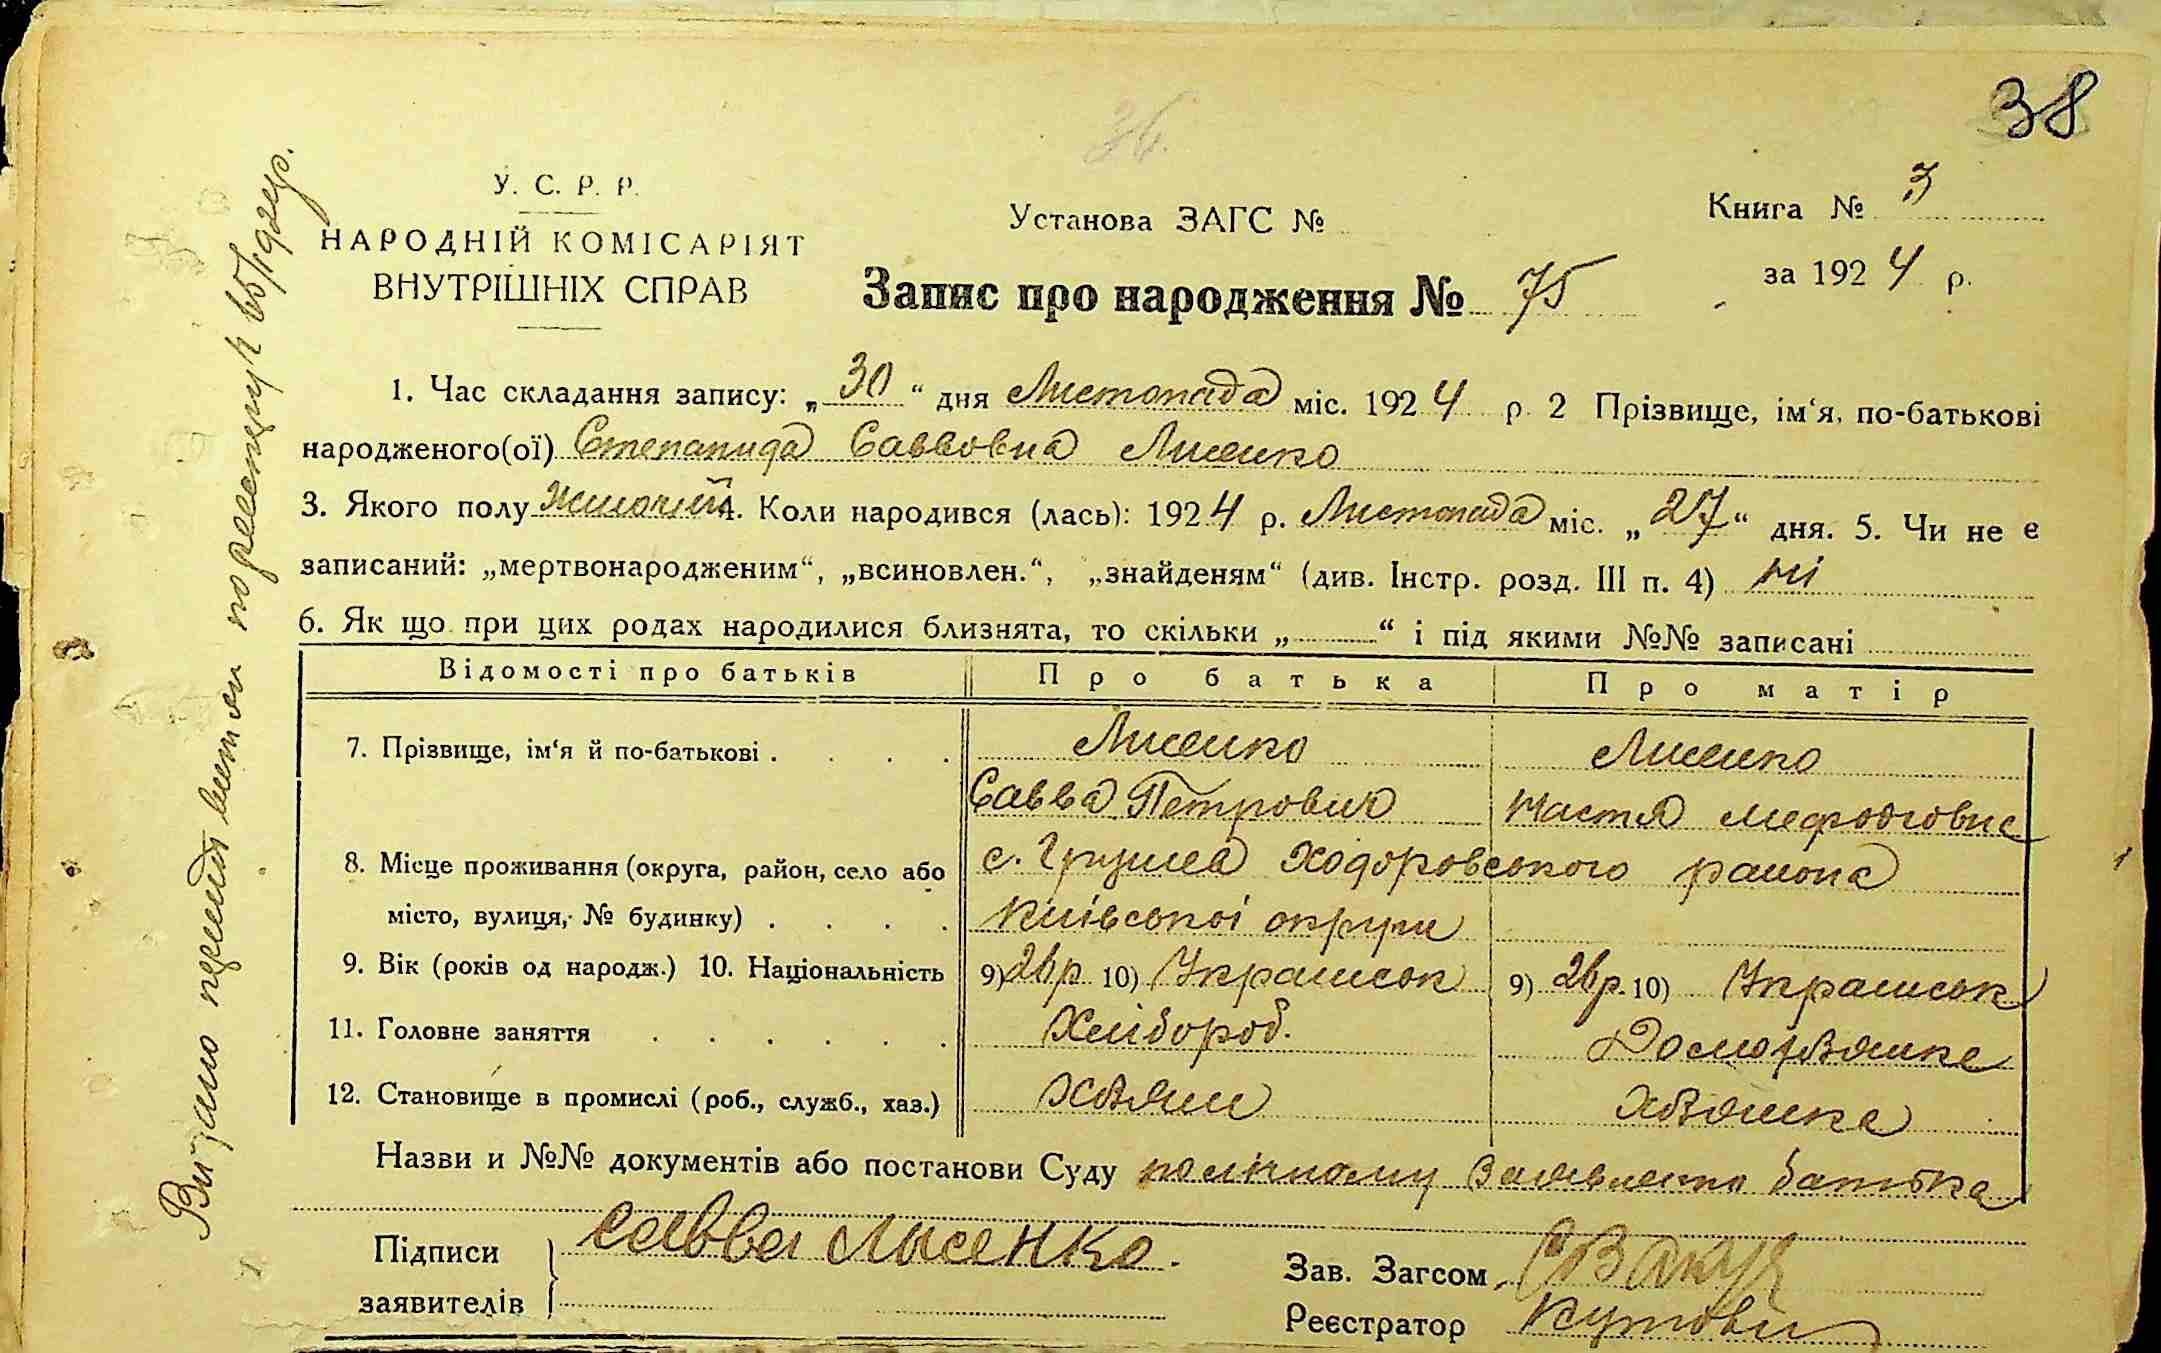 38
36.
У. С. Р. Р.
НАРОДНІЙ КОМІСАРІЯТ
ВНУТРІШНІХ СПРАВ
Установа ЗАГС №
Книга № 3
за 1924 р.
Запис про народження № 75
1. Час складання запису: „30“ дня Листопада міс. 1924 р. 2 Прізвище, ім‘я, по-батькові
народженого(ої) Степанида Саввовна Лисенко
3. Якого полу Жіночий 4. Коли народився (лась): 1924 р. Листопада міс. „27“ дня. 5. Чи не є
записаний: „мертвонародженим“, „всиновлен.“, „знайденям“ (див. Інстр. розд. III п. 4) ні
6. Як що при цих родах народилися близнята, то скільки „ “ і під якими №№ записані
Відомості про батьків Про батька Про матір
7. Прізвище, ім‘я й по-батькові . . . . Лисенко Лисенко
Савва Петрович Настя Мефодіовна
8. Місце проживання (округа, район, село або с. Грушев Ходоровського района
місто, вулиця, № будинку) . . . . Київської округи
9. Вік (років од народж.) 10. Національність 9) 26р. 10) Україн 9) 26р. 10) Україн
11. Головне заняття . . . . . . Хлібороб. Доморзяшка
12. Становище в промислі (роб., служб., хаз.) Хазяин Хазяйка
Назви и №№ документів або постанови Суду заявлению батька
Підписи Савва Лысенко.
заявителів
Зав. Загсом
Реєстратор Кутовий
Видано перший витяг по реєстру №